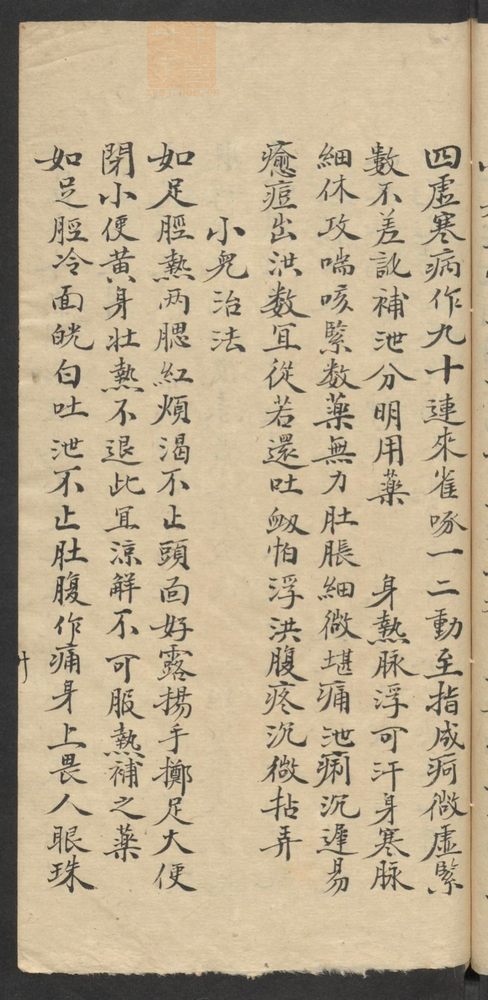 四虛寒病作九十連來雀啄一二動至指成疴微虛緊
數不差訛補泄分明用藥　身熱脉浮可汗身寒脉
細休攻喘咳緊数藥無力肚脹細微堪痛泄痢沉遲易
癒痘出洪数宜從若還吐衂怕浮洪腹疼沉微拈弄
小兒治法
如足脛熱两腮紅煩渴不止頭面好露揚手擲足大便
閉小便黄身壮熱不退此宜凉解不可服熱補之藥
如足脛冷面㿠白吐泄不止肚腹作痛身上畏人眼珠